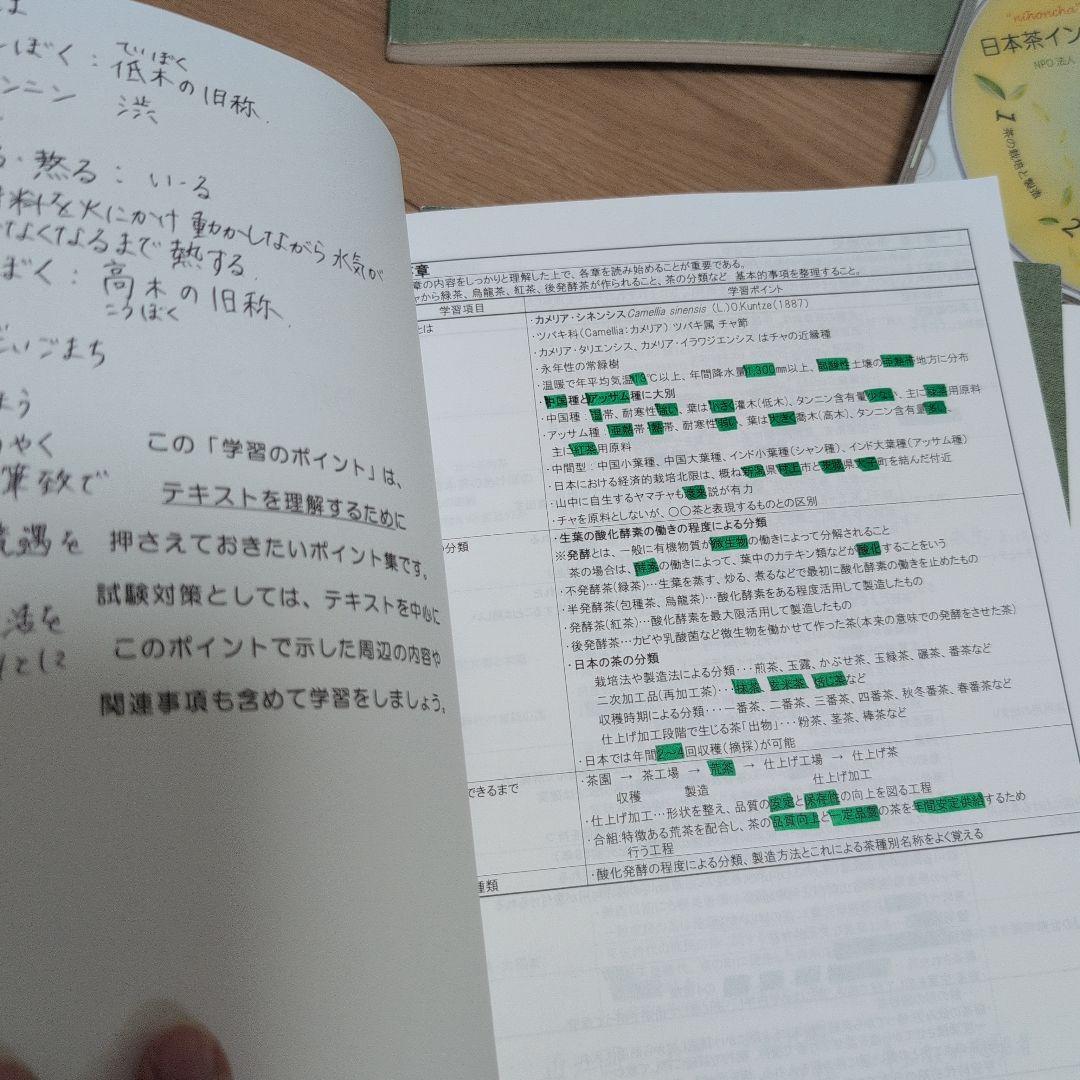 ーぼく：低木の旧称.
でいぼく
ンニン 渋
・熬る：いーる
料を火にかけ動かしながら水気が
なくなるまで熱する.
ぼく：高木の旧称.
こうぼく
いごまち
よう
やく
筆致で
境遇を
活を
この「学習のポイント」は、
テキストを理解するために
押さえておきたいポイント集です。
試験対策としては、テキストを中心に
このポイントで示した周辺の内容や
関連事項も含めて学習をしましょう。
章
章の内容をしっかりと理解した上で、各章を読み始めることが重要である。
から緑茶、烏龍茶、紅茶、後発酵茶が作られること、茶の分類など 基本的事項を整理すること。
学習項目 学習ポイント
とは
・カメリア・シネンシス Camellia sinensis (L.)O.Kuntze(1887)
・ツバキ科(Camellia：カメリア) ツバキ属 チャ節
・カメリア・タリエンシス、カメリア・イラワジエンシス はチャの近縁種
・永年性の常緑樹
・温暖で年平均気温13℃以上、年間降水量1,300mm以上、弱酸性土壌の亜熱帯地方に分布
中国種とアッサム種に大別
・中国種：温帯、耐寒性強い、葉は小さく灌木(低木)、タンニン含有量少ない、主に緑茶用原料
・アッサム種：亜熱帯 熱帯、耐寒性弱い、葉は大きく喬木(高木)、タンニン含有量多い、
主に紅茶用原料
・中間型：中国小葉種、中国大葉種、インド小葉種(シャン種)、インド大葉種(アッサム種)
・日本における経済的栽培北限は、概ね新潟県村上市と茨城県大子町を結んだ付近
・山中に自生するヤマチャも渡来説が有力
・チャを原料としないが、〇〇茶と表現するものとの区別
の分類
・生葉の酸化酵素の働きの程度による分類
※発酵とは、一般に有機物質が微生物の働きによって分解されること
茶の場合は、酵素の働きによって、葉中のカテキン類などが酸化することをいう
・不発酵茶(緑茶)…生葉を蒸す、炒る、煮るなどで最初に酸化酵素の働きを止めたもの
・半発酵茶(包種茶、烏龍茶)…酸化酵素をある程度活用して製造したもの
・発酵茶(紅茶)…酸化酵素を最大限活用して製造したもの
・後発酵茶…カビや乳酸菌など微生物を働かせて作った茶(本来の意味での発酵をさせた茶)
・日本の茶の分類
栽培法や製造法による分類・・・煎茶、玉露、かぶせ茶、玉緑茶、碾茶、番茶など
二次加工品(再加工茶)・・・抹茶、玄米茶、焙じ茶など
収穫時期による分類・・・一番茶、二番茶、三番茶、四番茶、秋冬番茶、春番茶など
仕上げ加工段階で生じる茶「出物」・・・粉茶、茎茶、棒茶など
・日本では年間2～4回収穫(摘採)が可能
できるまで
・茶園 → 茶工場 → 荒茶 → 仕上げ工場 → 仕上げ茶
収穫 製造 仕上げ加工
・仕上げ加工…形状を整え、品質の安定と保存性の向上を図る工程
・合組：特徴ある荒茶を配合し、茶の品質向上と一定品質の茶を年間安定供給するため
行う工程
種類
・酸化発酵の程度による分類、製造方法とこれによる茶種別名称をよく覚える
"nihoncha"
日本茶イン
NPO法人
1 茶の栽培と製造
2